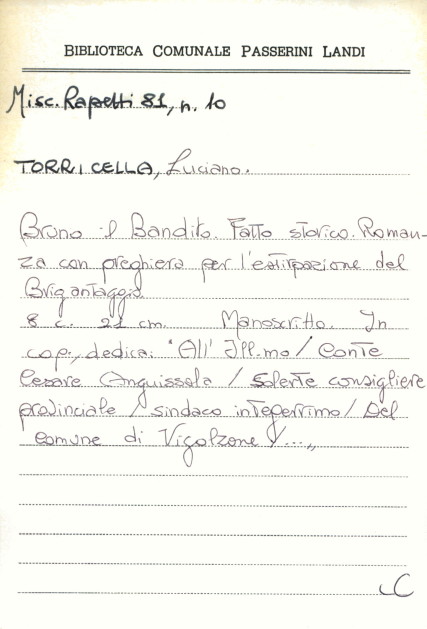 BIBLIOTECA COMUNALE PASSERINI LANDI
Misc. Rapetti 81, n. 10
TORRICELLA, Luciano.
Bruno il Bandito. Fatto storico. Roman-
za con preghiera per l'estirpazione del
Brigantaggio
8 c. 21 cm. Manoscritto. In
cop., dedica: "All' Ill.mo / Conte
Cesare Anguissola / Solerte consigliere
provinciale / sindaco integerrimo / Del
comune di Vigolzone /..."